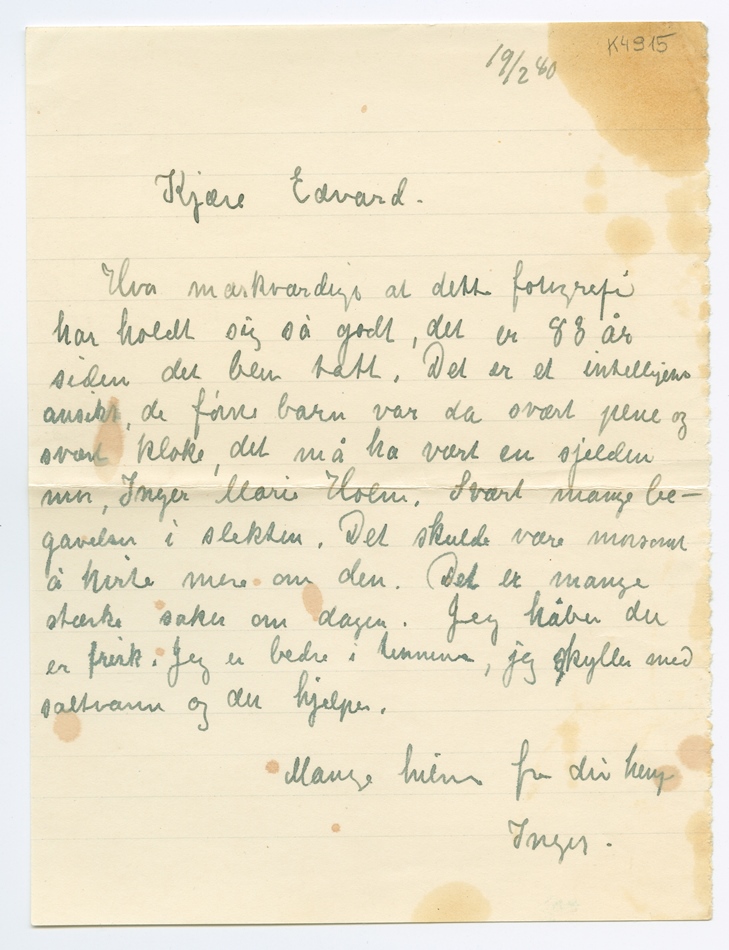 K4915
19/2 40
Kjære Edvard.
Hva mærkværdigt at dette fotografi
har holdt sig så godt, det er 83 år
siden det blev tatt. Det er et intelligens
ansikt, de første barn var da svært pene og
svært kloke, det må ha vært en sjelden
mor, Inger Marie Holm. Svært mange be-
gavelser i slekten. Det skulde være morsomt
å høre mere om den. Det er mange
stærke saker om dagen. Jeg håber du
er frisk. Jeg er bedre i, jeg skyller med
saltvann og det hjelper.
Mange hilsen fra din heng
Inger.